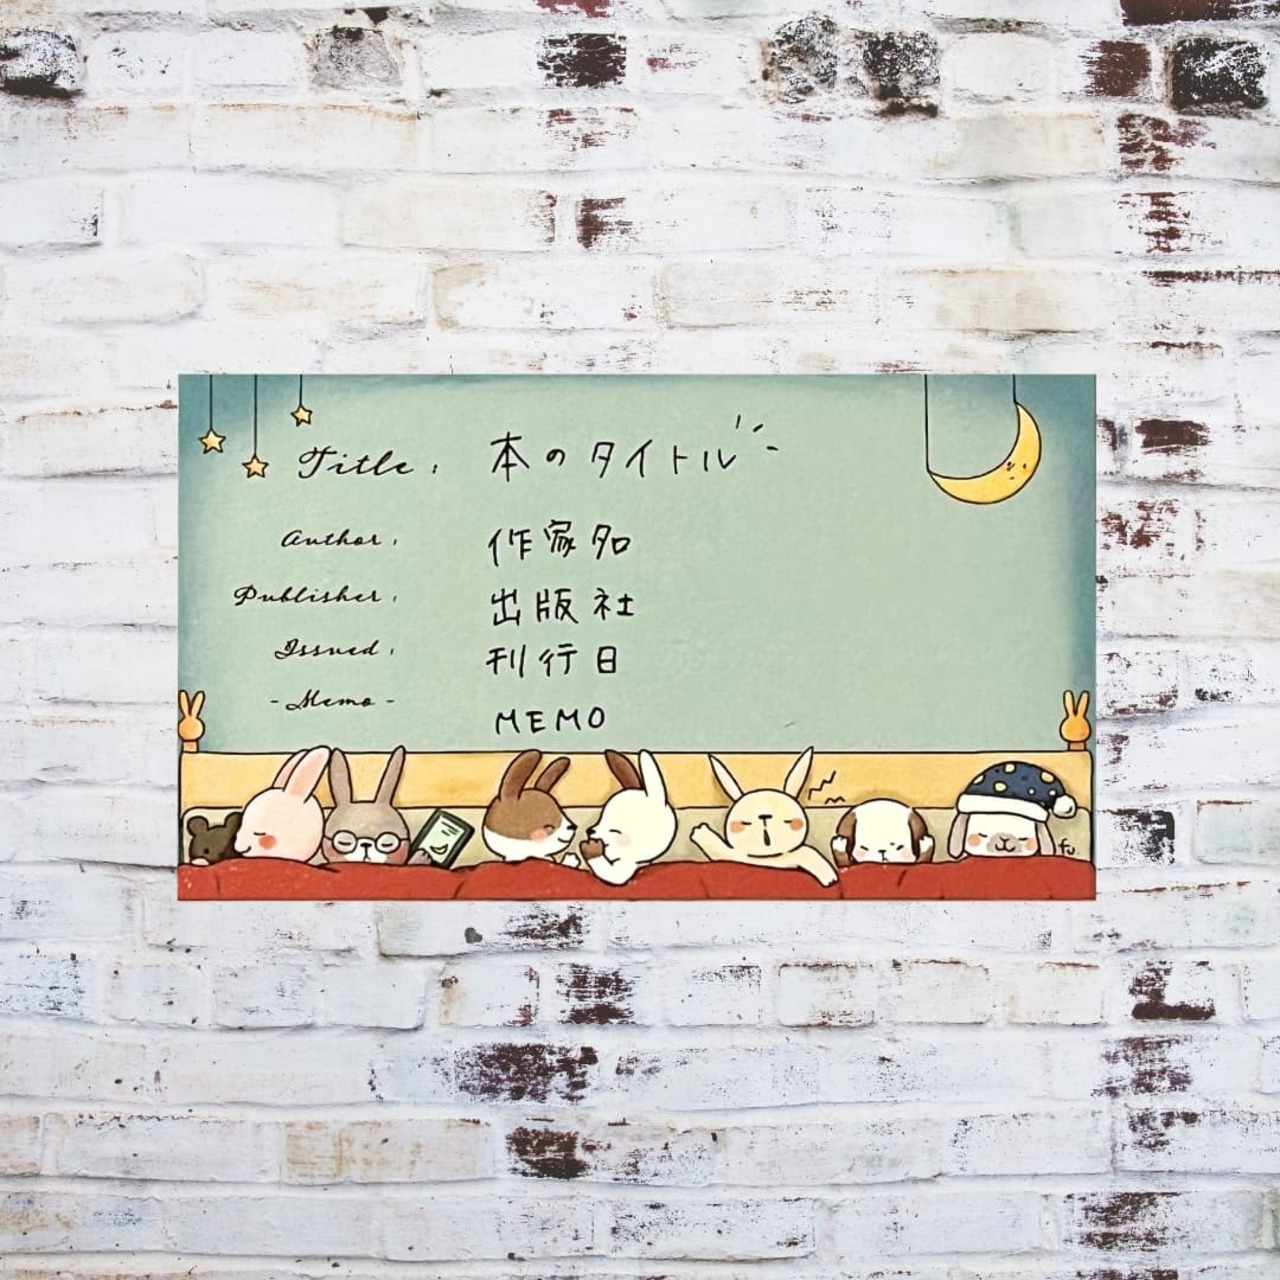 Title : 本のタイトル
Author : 作家名
Publisher : 出版社
Issued : 刊行日
- Memo - MEMO
fu